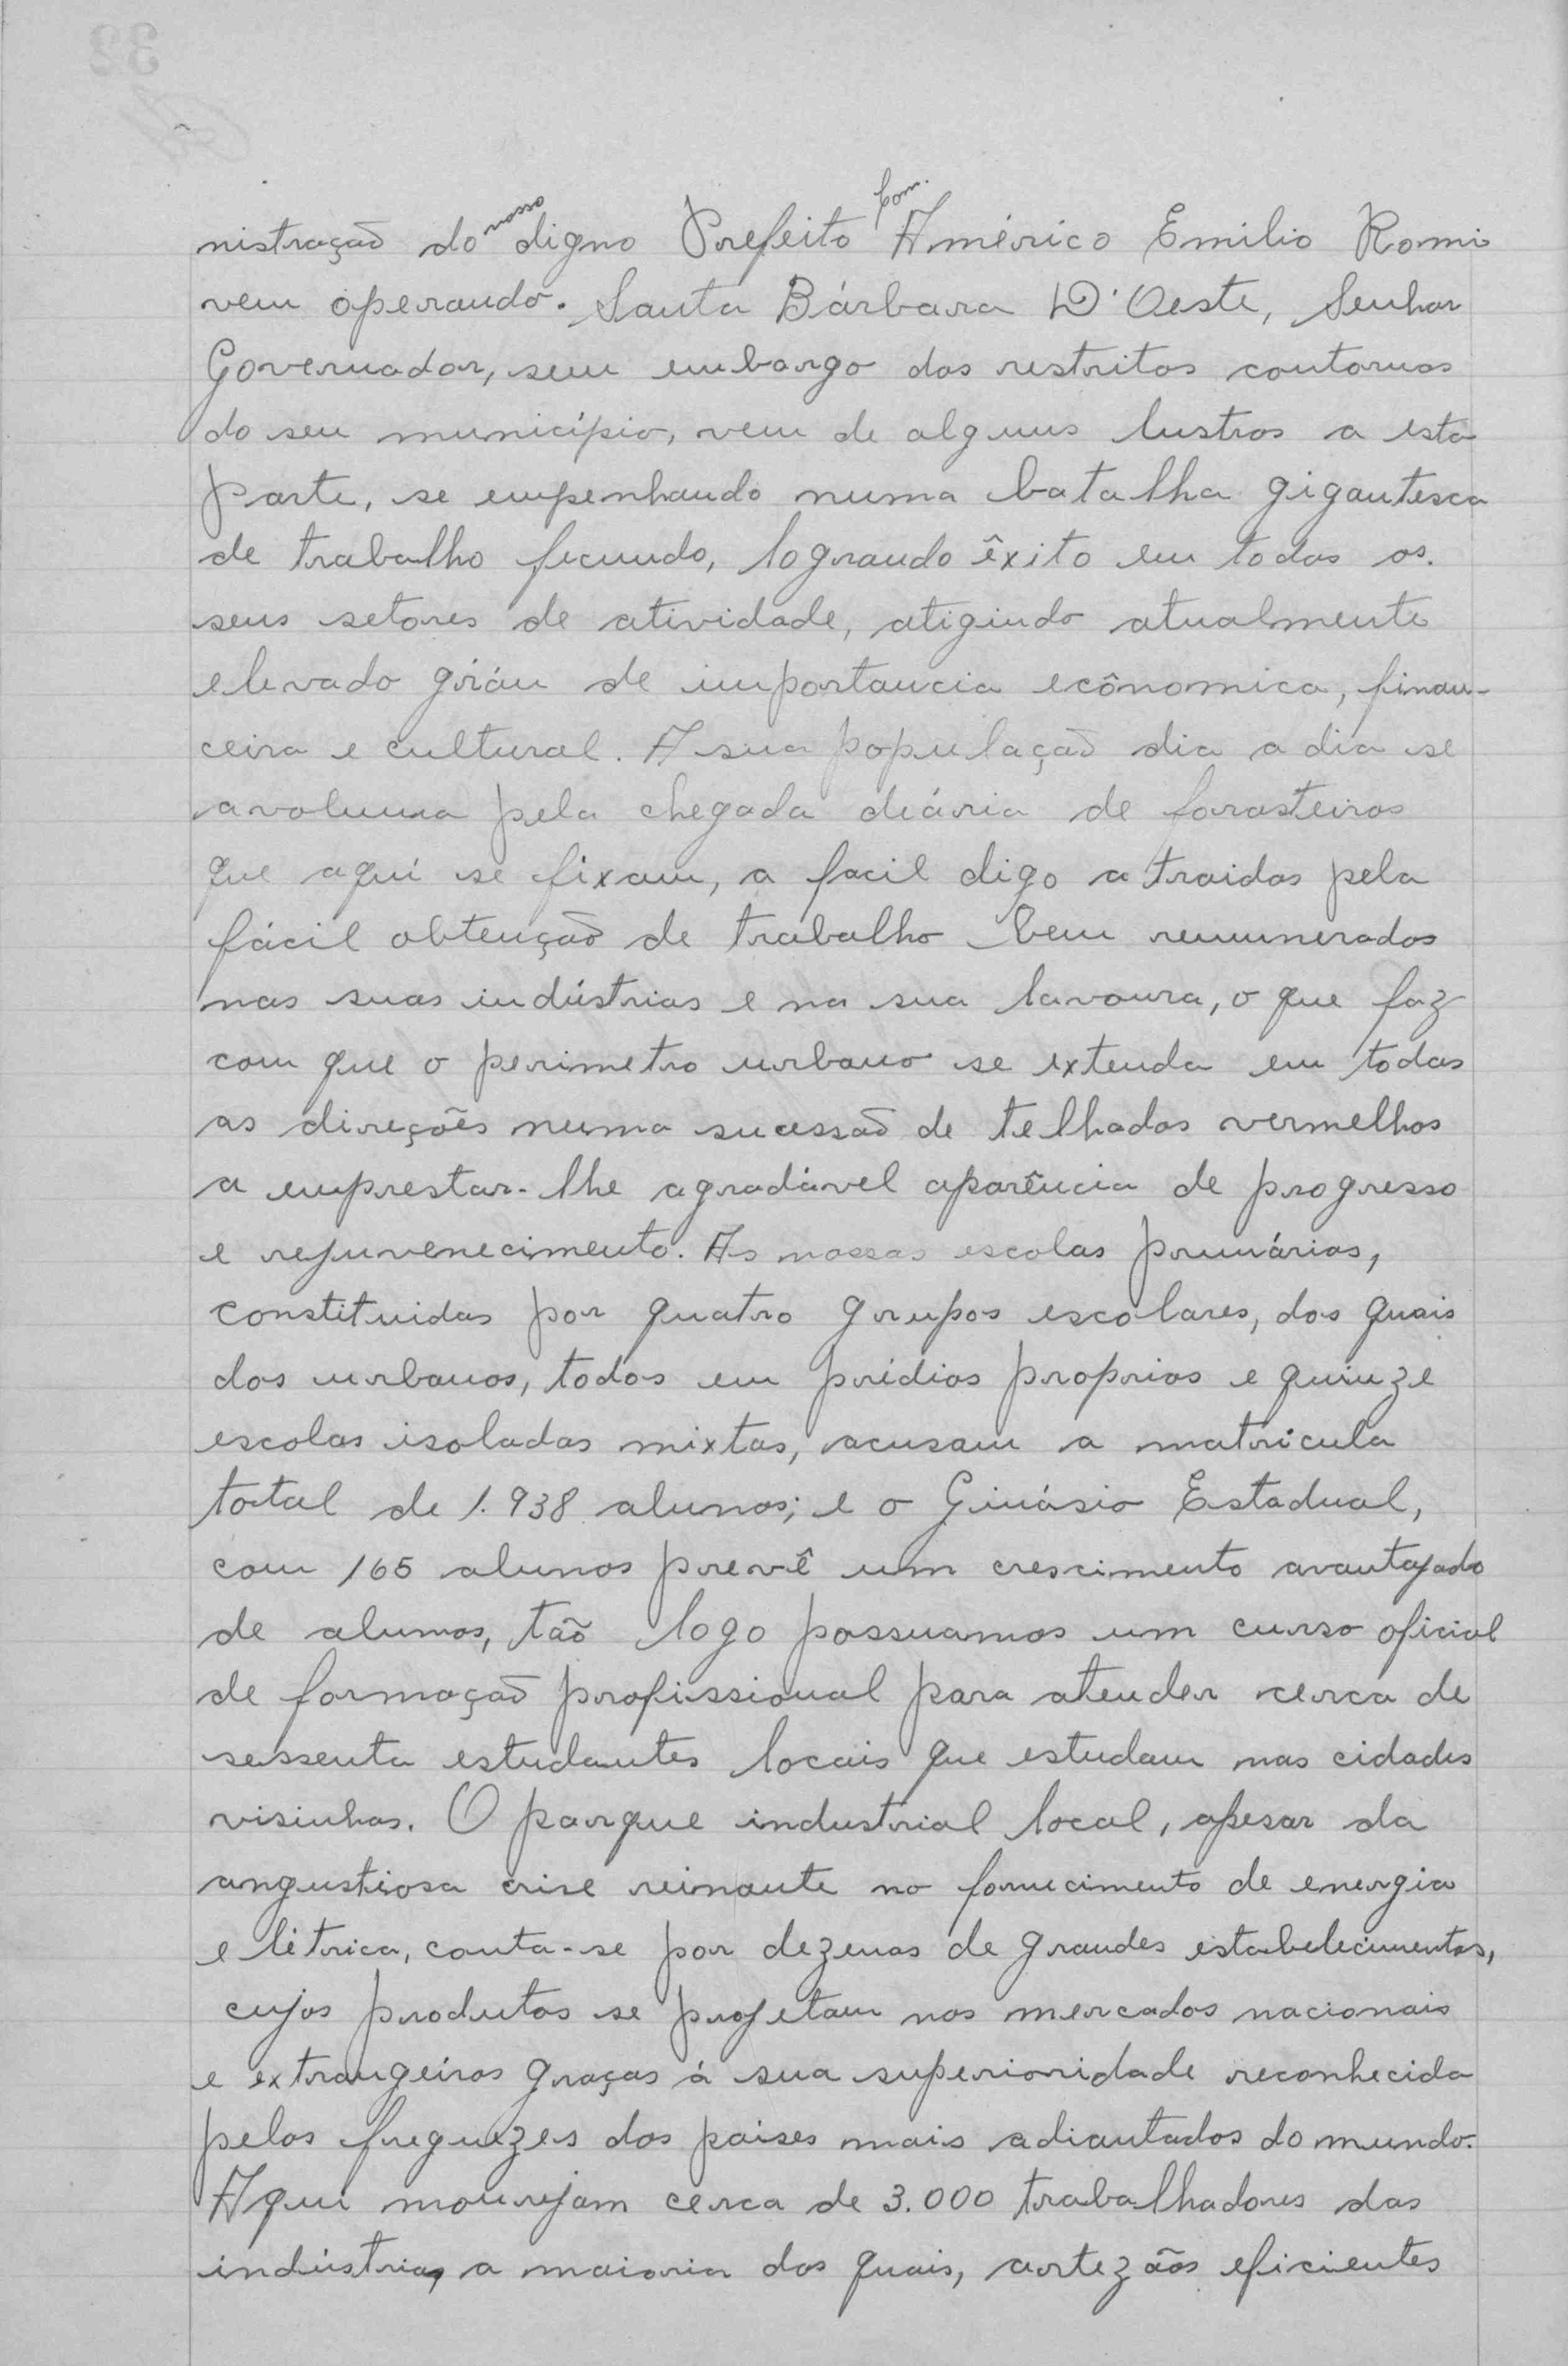 nistração do nosso digno Prefeito Com. Américo Emilio Romi
vem operando. Santa Bárbara D'Oeste, Senhor
Governador, sem embargo dos restritos contornos
do seu município, vem de alguns lustros a esta
parte, se empenhando numa batalha gigantesca
de trabalho fecundo, logrando êxito em todos os
seus setores de atividade, atigindo atualmente
elevado gráu de importancia ecônomica, finan-
ceira e cultural. A sua população dia a dia se
avoluma pela chegada diária de forasteiros
que aqui se fixam, a facil digo atraidos pela
fácil obtenção de trabalho bem remunerados
nas suas indústrias e na sua lavoura, o que faz
com que o perimetro urbano se extenda em todas
as direções numa sucessão de telhados vermelhos
a emprestar-lhe agradável aparência de progresso
e rejuvenecimento. As nossas escolas primárias,
constituidas por quatro grupos escolares, dos quais
dos urbanos, todos em prédios proprios e quinze
escolas isoladas mixtas, acusam a matrícula
total de 1.938 alunos; e o Ginásio Estadual,
com 165 alunos prevê um crescimento avantajado
de alunos, tão logo possuamos um curso oficial
de formação profissional para atender cerca de
sessenta estudantes locais que estudam nas cidades
visinhas. O parque industrial local, apesar da
angustiosa crise reinante no fornecimento de energia
elétrica, conta-se por dezenas de grandes estabelecimentos,
cujos produtos se projetam nos mercados nacionais
e extrangeiros graças á sua superioridade reconhecida
pelos freguezes dos paises mais adiantados do mundo.
Aqui mourejam cerca de 3.000 trabalhadores das
indústrias, a maioria dos quais, artezãos eficientes